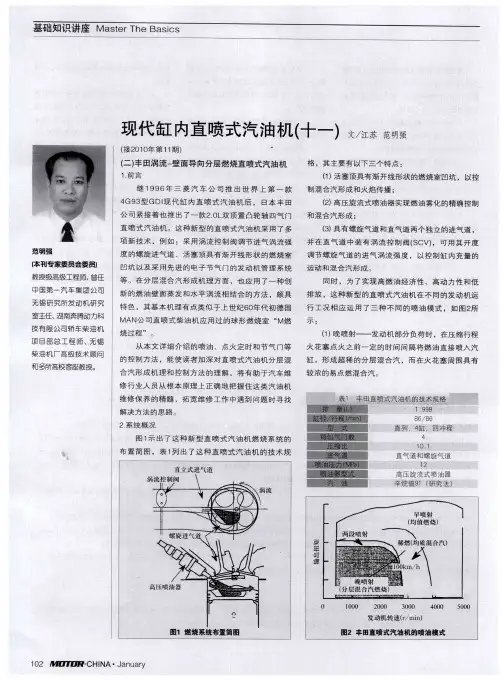 基础知识讲座 Master The Basics
现代缸内直喷式汽油机(十一)
文/江苏 范明强
范明强
(本刊专家委员会委员)
教授级高级工程师,曾任
中国第一汽车集团公司
无锡研究所发动机研究
室主任,湖南奔腾动力科
技有限公司轿车柴油机
项目部总工程师、无锡
柴油机厂高级技术顾问
和多所高校客座教授。
(接2010年第11期)
(二)丰田涡流-壁面导向分层燃烧直喷式汽油机
1.前言
继1996年三菱汽车公司推出世界上第一款
4G93型GDI现代缸内直喷式汽油机后,日本丰田
公司紧接着也推出了一款2.0L双顶置凸轮轴四气门
直喷式汽油机。这种新型的直喷式汽油机采用了多
项新技术,例如:采用涡流控制阀调节进气涡流强
度的螺旋进气道、活塞顶具有渐开线形状的燃烧室
凹坑以及采用先进的电子节气门的发动机管理系统
等。在分层混合气形成机理方面,也应用了一种创
新的燃油壁面蒸发和水平涡流相结合的方法,颇具
特色,其基本机理有点类似于上世纪60年代初德国
MAN公司直喷式柴油机应用过的球形燃烧室“M燃
烧过程”。
从本文详细介绍的喷油、点火定时和节气门等
的控制方法,能使读者加深对直喷式汽油机分层混
合气形成机理和控制方法的理解,将有助于汽车维
修行业人员从根本原理上正确地把握住这类汽油机
维修保养的精髓,拓宽维修工作中遇到问题时寻找
解决方法的思路。
2.系统概况
图1示出了这种新型直喷式汽油机燃烧系统的
布置简图。表1列出了这种直喷式汽油机的技术规
直立式进气道
涡流控制阀
涡流
螺旋进气道
高压喷油器
图1 燃烧系统布置简图
格,其主要有以下三个特点:
(1) 活塞顶具有渐开线形状的燃烧室凹坑,以控
制混合气形成和火焰传播;
(2) 高压旋流式喷油器实现燃油雾化的精确控制
和混合气形成;
(3) 具有螺旋气道和直气道两个独立的进气道,
并在直气道中装有涡流控制阀(SCV),可用其开度
调节螺旋气道的进气涡流强度,以控制缸内充量的
运动和混合气形成。
同时,为了实现高燃油经济性、高动力性和低
排放,这种新型的直喷式汽油机在不同的发动机运
行工况相应运用了三种不同的喷油模式,如图2所
示:
(1) 晚喷射——发动机部分负荷时,在压缩行程
火花塞点火之前一定的时间间隔将燃油直接喷入汽
缸,形成超稀的分层混合气,而在火花塞周围具有
较浓的易点燃混合气。
表1 丰田直喷式汽油机的技术规格
排 量(L) 1.998
缸径/行程(mm) 86/86
型 式 直列,4缸,四冲程
每缸气门数 4
压缩比 10:1
进气道 直气道和螺旋气道
喷油压力(MPa) 12
喷油器型式 高压旋流式喷油器
汽 油 辛烷值91(研究法)
早喷射
(均值燃烧)
两段喷射
稀燃(均质混合汽)
100km/h
晚喷射
(分层混合汽燃烧)
输出扭矩
0 1000 2000 3000 4000 5000
发动机转速(r/min)
图2 丰田直喷式汽油机的喷油模式
102 MOTOR·CHINA·January